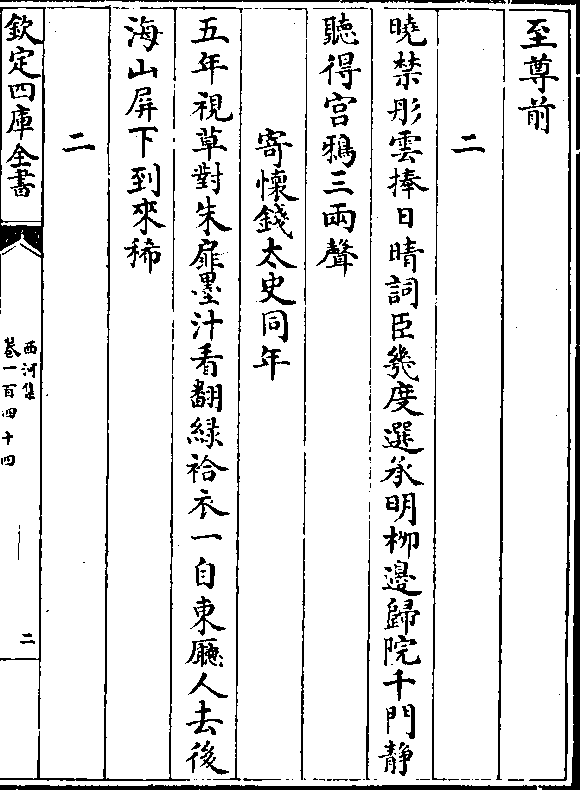 至尊前
二
曉禁彤雲捧日晴詞臣幾度選承明柳邊歸院千門靜
聽得宮鴉三兩聲
寄懷錢太史同年
五年視草對朱扉墨汁看翻綠袷衣一自東廳人去後
海山屏下到來稀
二
欽定四庫全書
西河集
卷一百四十四
二